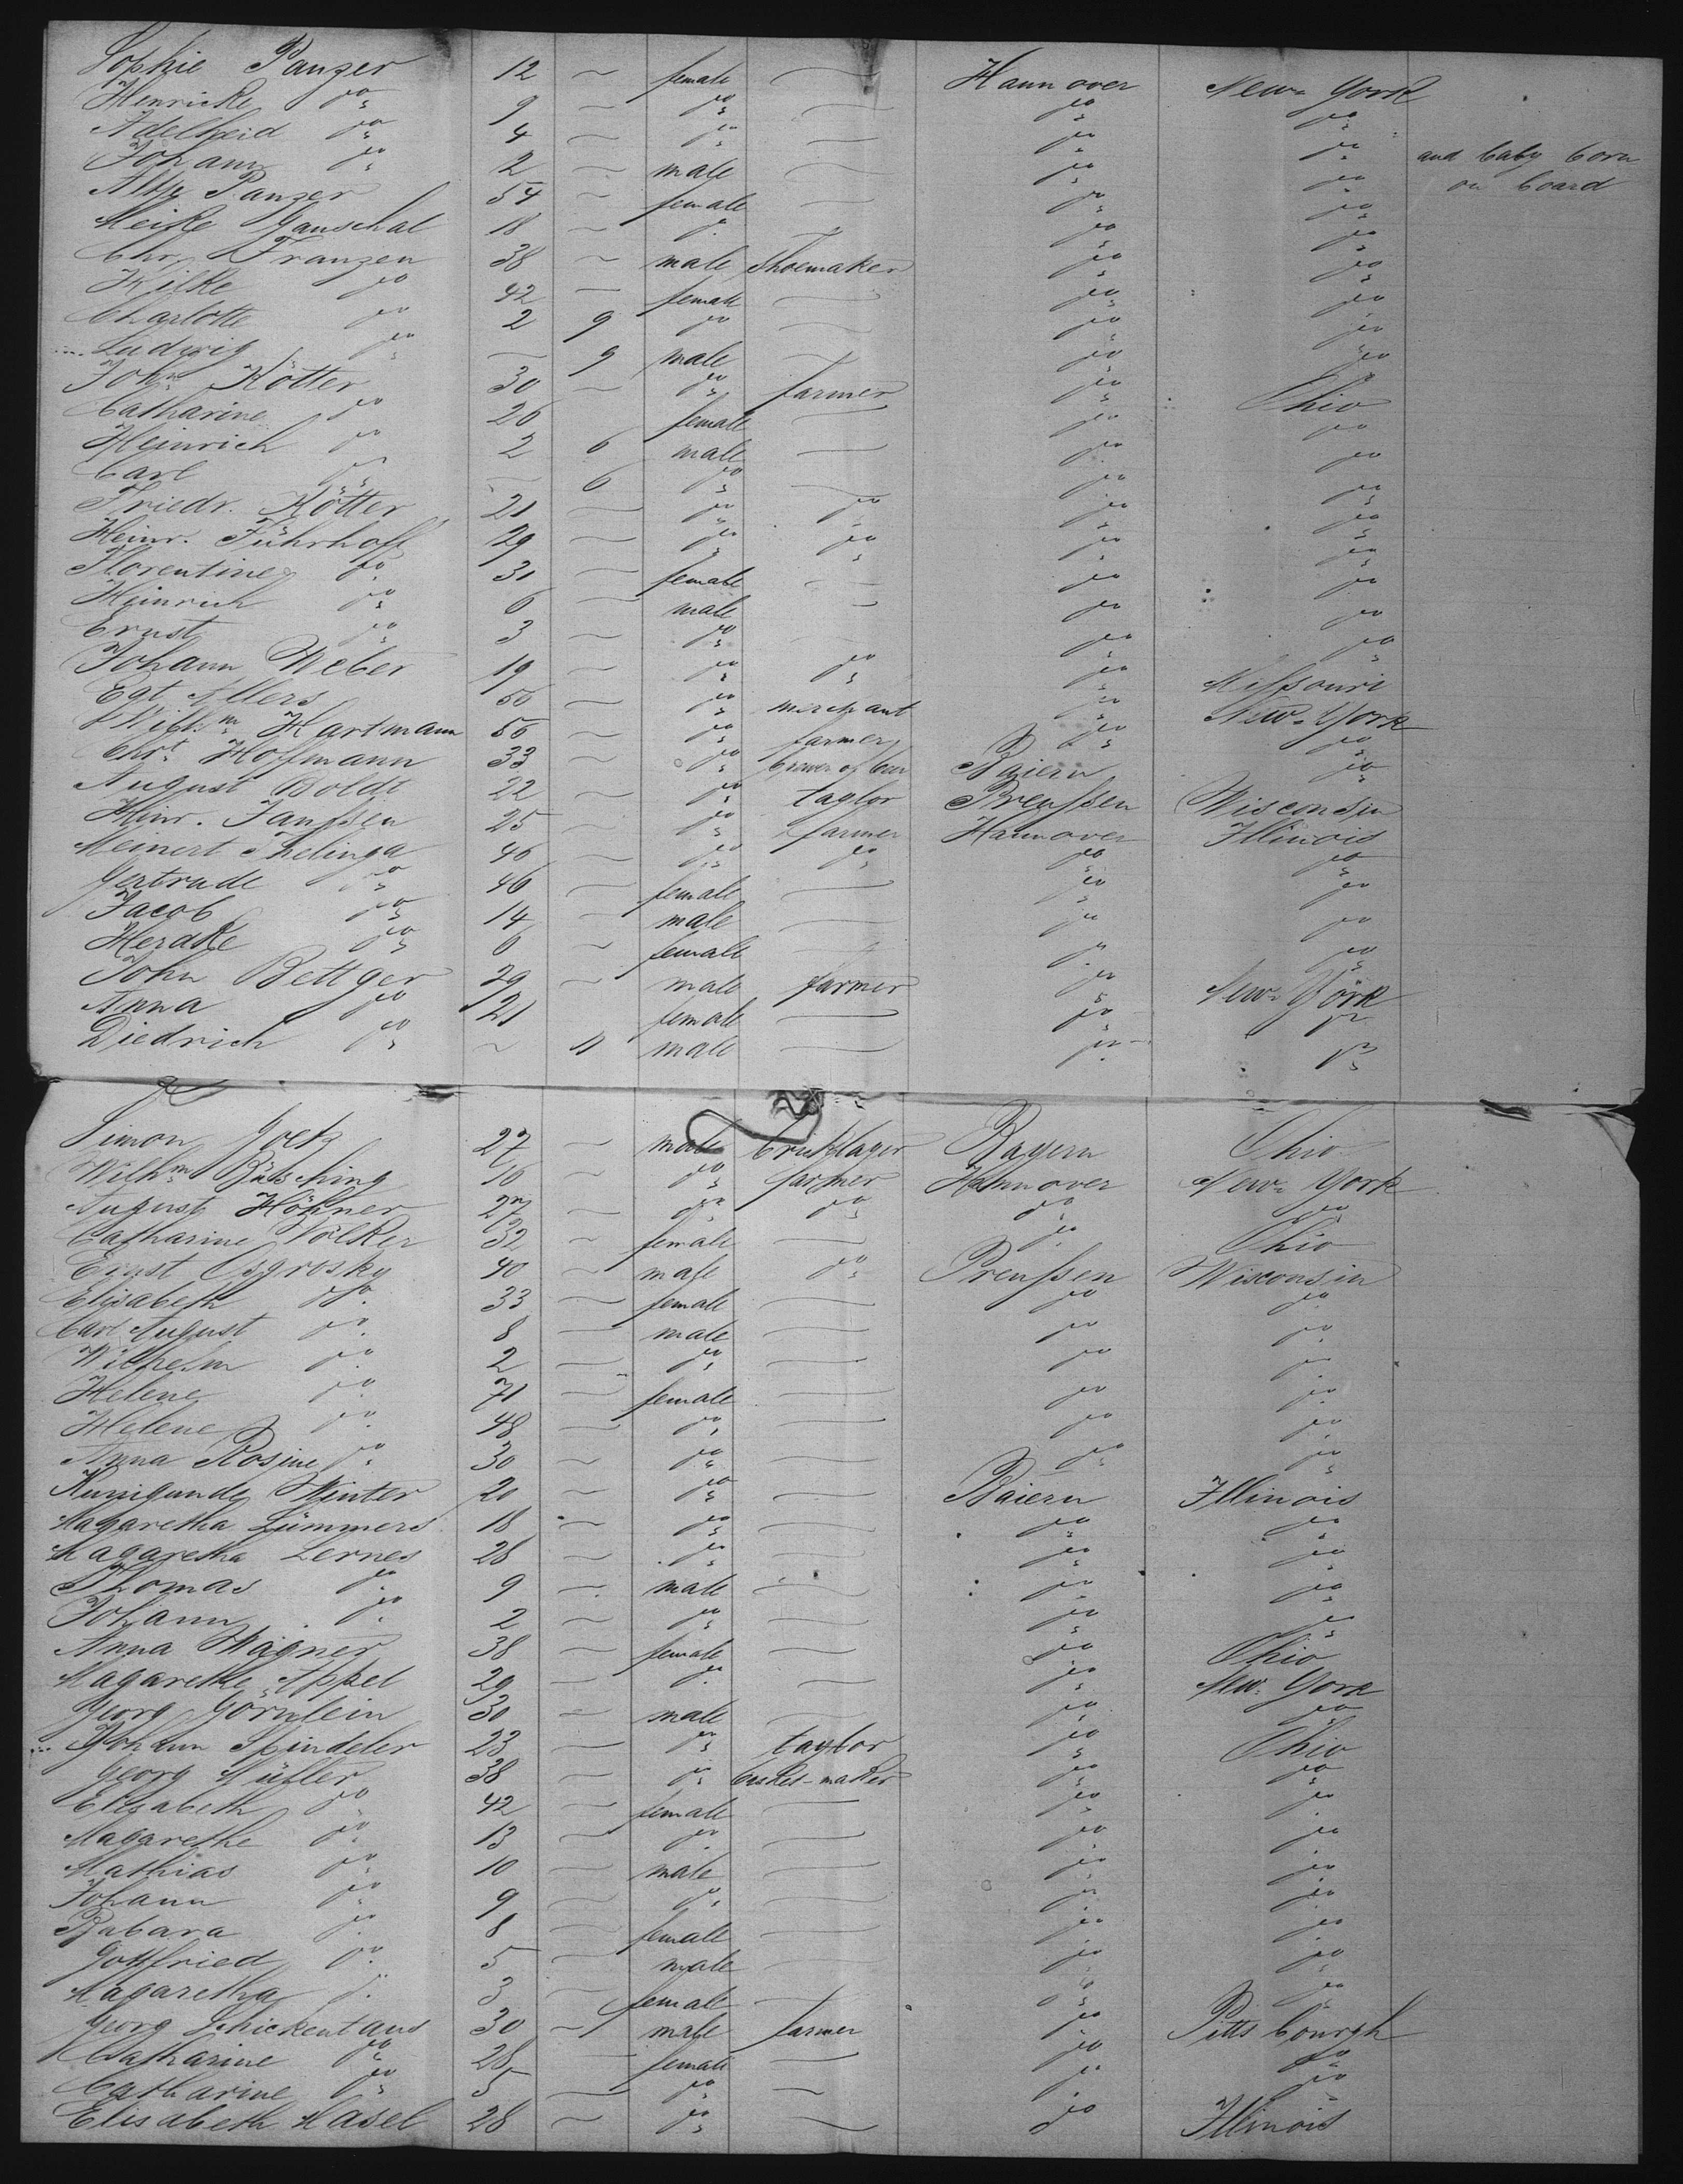 Sophie Panzer 12 — female — Hannover New-York
Henricke do 9 — do — do do
Adelheid do 4 — do — do do
Johann do 2 — male — do do and baby born
Panzer 54 — female — do do on board
Meike Ganschal 18 — do — do do
Chr. Franzen 38 — male Shoemaker do do
Hilke do 42 — female — do do
Charlotte do 2 9 do — do do
Ludwig do — 9 male — do do
Johⁿ Kötter 30 — do farmer do Ohio
Catharine do 26 female — do do
Heinrich do 2 6 male — do do
Carl do — 6 do — do do
Friedr. Kötter 21 — do do do do
Heinr. Führhoff 29 — do do do do
Florentine do 31 — female — do do
Heinrich do 6 — male — do do
Ernst do 3 — do do do
Johann Weber 19 — do do do Missouri
Egt. Allers 50 — do merchant do New-York
Wilhᵐ Hartmann 56 — do farmer do do
Chrᵗ Hoffmann 33 — do brewer of beer Baiern do
August Boldt 22 — do taylor Preussen Wisconsin
Heinr. Janssen 25 — do farmer Hannover Illinois
Meinert Thelinga 46 — do do do do
Gertrude do 46 — female — do do
Jacob do 14 — male — do do
Herdke do 6 — female — do do
John Bettger 29 — male farmer do New-York
Anna do 21 female — do do
Diedrich do — 11 male — do do
Simon Goetz 27 — male bricklayer Bayern Ohio
Wilhᵐ Bütsching 16 — do farmer Hannover New-York
August Höhner 27 — do do do do
Catharine Völker 32 — female — do Ohio
Ernst 40 — male do Preussen Wisconsin
Elisabeth do 33 — female — do do
Carl August do 8 — male — do do
Wilhelm do 2 — do — do do
Helene do 71 — female — do do
Helene do 48 — do — do do
Anna Rosine do 30 — do — do do
Kunigunde Winter 20 — do — Baiern Illinois
Magaretha Lümmers 18 — do — do do
Magaretha Lernes 28 — do — do do
Thomas do 9 — male — do do
Johann do 2 — do — do do
Anna Wagner 38 — female — do Ohio
Magarethe Appel 29 — do — do New-York
Georg Görnlein 30 — male — do do
Johann Spindeler 23 — do taylor do Ohio
Georg Müller 38 — do basket-maker do do
Elisabeth do 42 — female — do do
Magarethe do 13 — do — do do
Mathias do 10 — male — do do
Johann do 9 — do — do do
Babara do 8 — female — do do
Gottfried do 5 — male — do do
Magaretha do 3 — female — do do
Georg Schickentans 30 — male farmer do Pittsbourgh
Catharine do 28 — female — do do
Catharine do 5 — do — do do
Elisabeth Hasel 28 — do — do Illinois